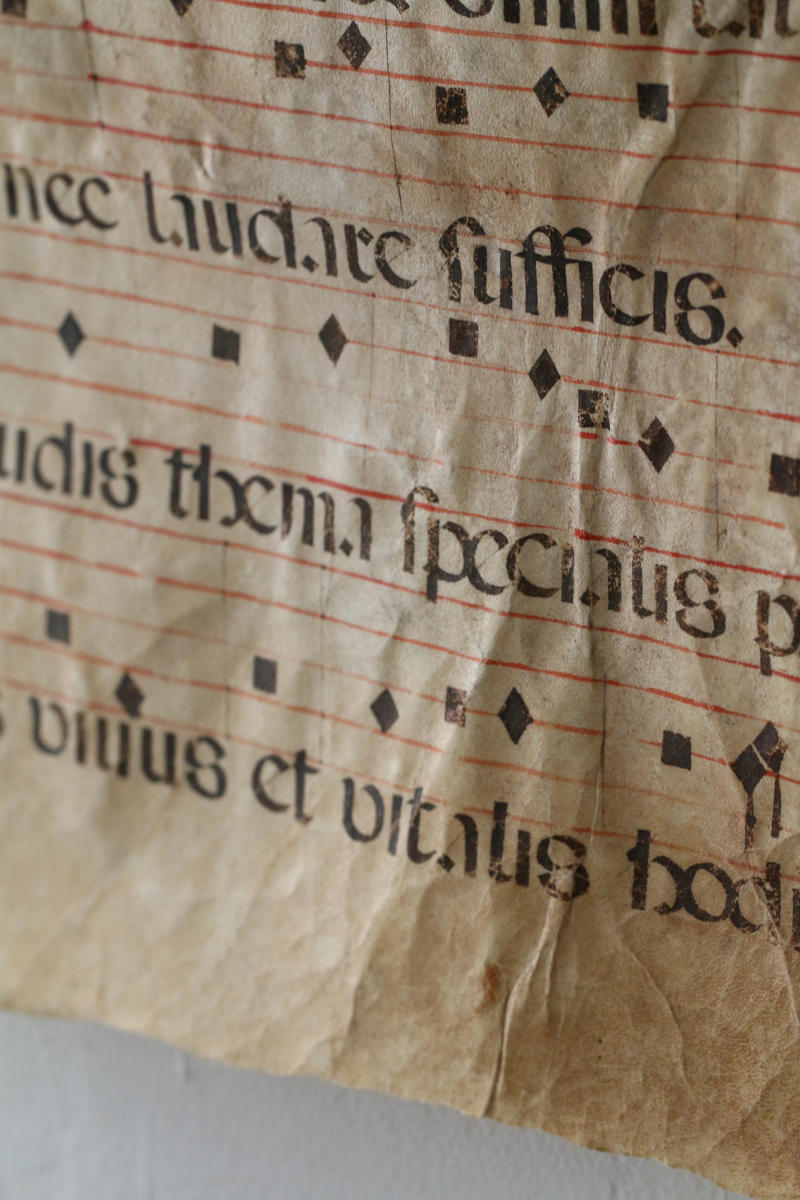 omni
nec laudare sufficis.
udis thema specialis p
s vivus et vitalis hodi